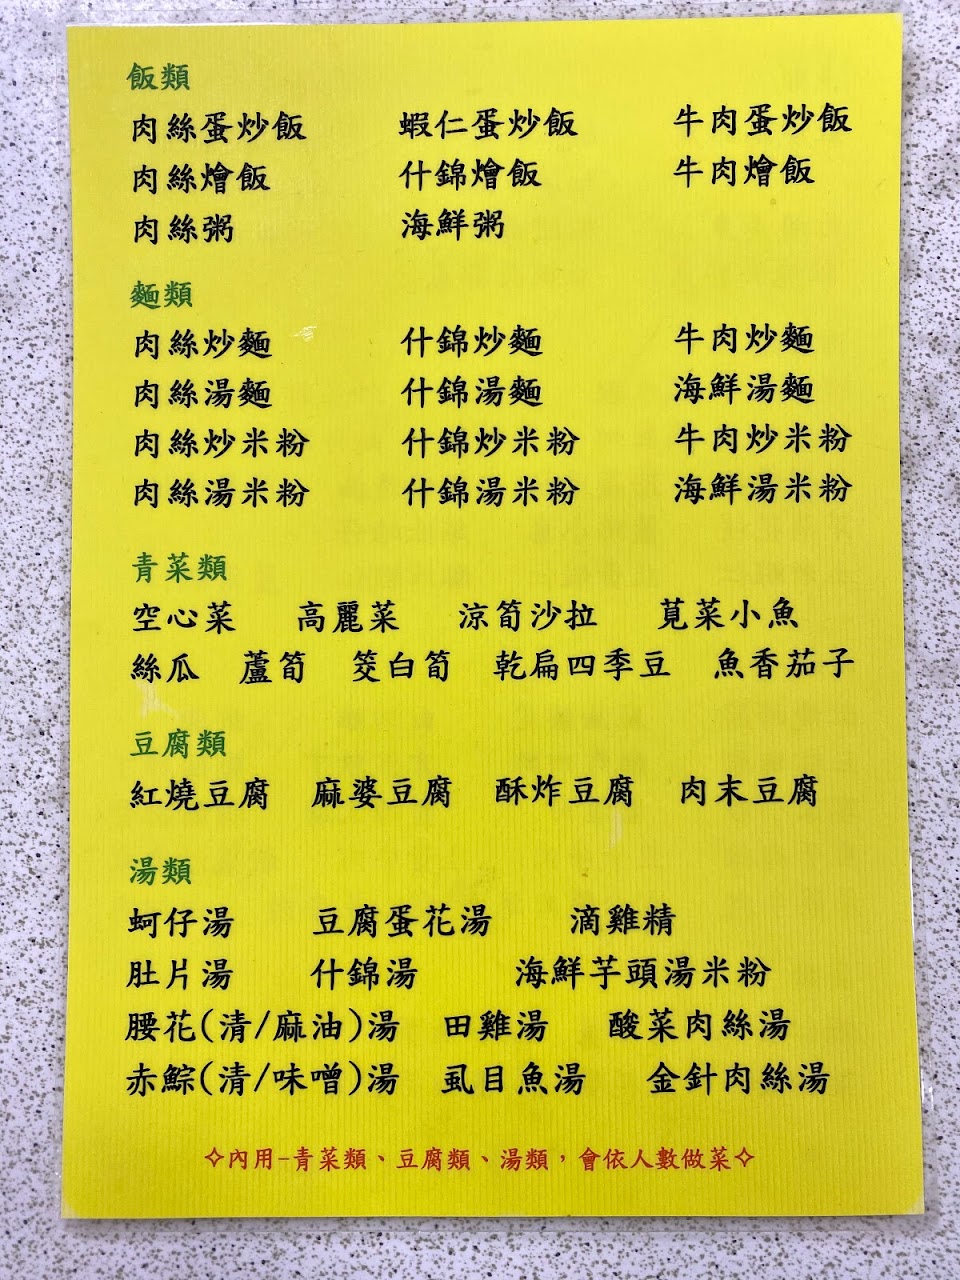 飯類
肉絲蛋炒飯 蝦仁蛋炒飯 牛肉蛋炒飯
肉絲燴飯 什錦燴飯 牛肉燴飯
肉絲粥 海鮮粥
麵類
肉絲炒麵 什錦炒麵 牛肉炒麵
肉絲湯麵 什錦湯麵 海鮮湯麵
肉絲炒米粉 什錦炒米粉 牛肉炒米粉
肉絲湯米粉 什錦湯米粉 海鮮湯米粉
青菜類
空心菜 高麗菜 涼筍沙拉 莧菜小魚
絲瓜 蘆筍 筊白筍 乾扁四季豆 魚香茄子
豆腐類
紅燒豆腐 麻婆豆腐 酥炸豆腐 肉末豆腐
湯類
蚵仔湯 豆腐蛋花湯 滴雞精
肚片湯 什錦湯 海鮮芋頭湯米粉
腰花(清/麻油)湯 田雞湯 酸菜肉絲湯
赤鯮(清/味噌)湯 虱目魚湯 金針肉絲湯
✧內用-青菜類、豆腐類、湯類，會依人數做菜✧